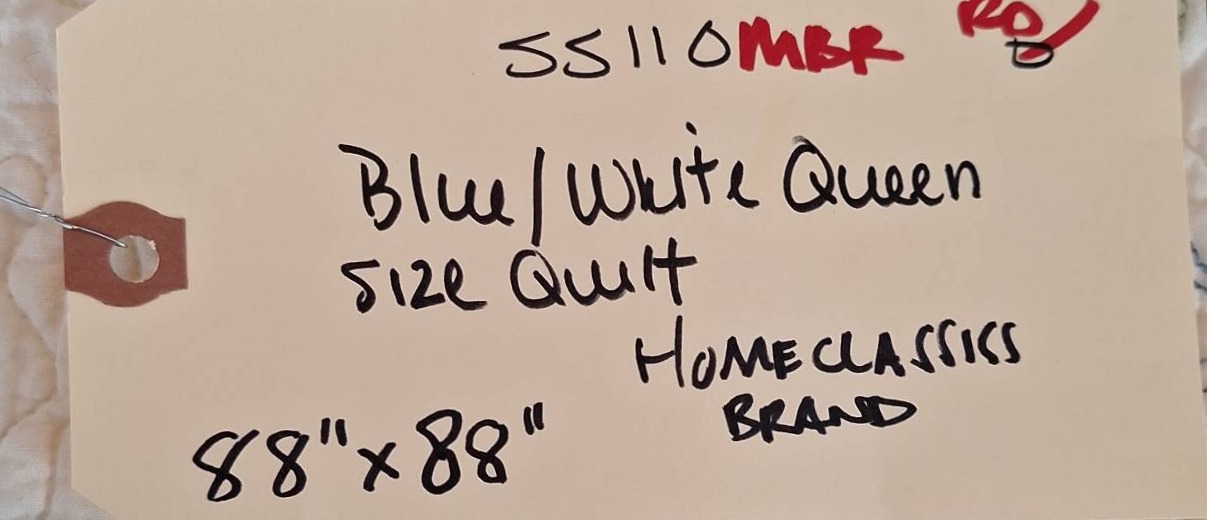 SS110MBR RD
Blue/White Queen
Size Quilt
HOMECLASSICS
BRAND
88" x 88"